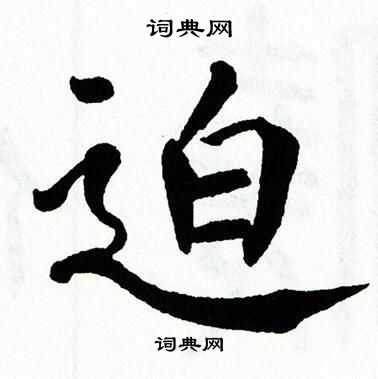 词典网
迫
词典网